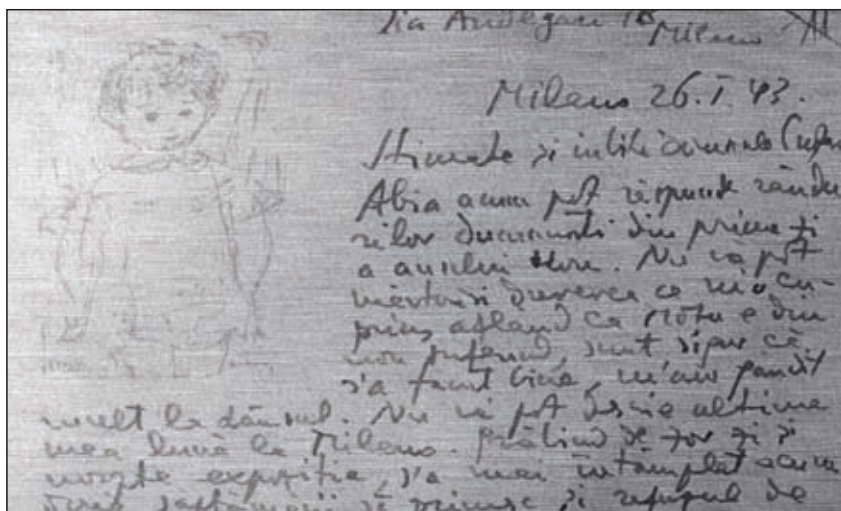 Via Andegari 18 Milano
Milano 26.I.43.
Stimate și iubite domnule
Abia acum pot răspunde rându
rilor dumneavoastră din prima zi
a anului nou. Nu vă pot
mărturisi durerea ce m'a cu-
prins aflând că e din
nou suferind, sunt sigur că
s'a făcut bine, m'am gândit
mult la dânsul. Nu vă pot descrie ultima
mea lună la Milano. de zor zi și
noapte expoziția, s'a mai întâmplat acum
două săptămâni să primesc și refuzul de